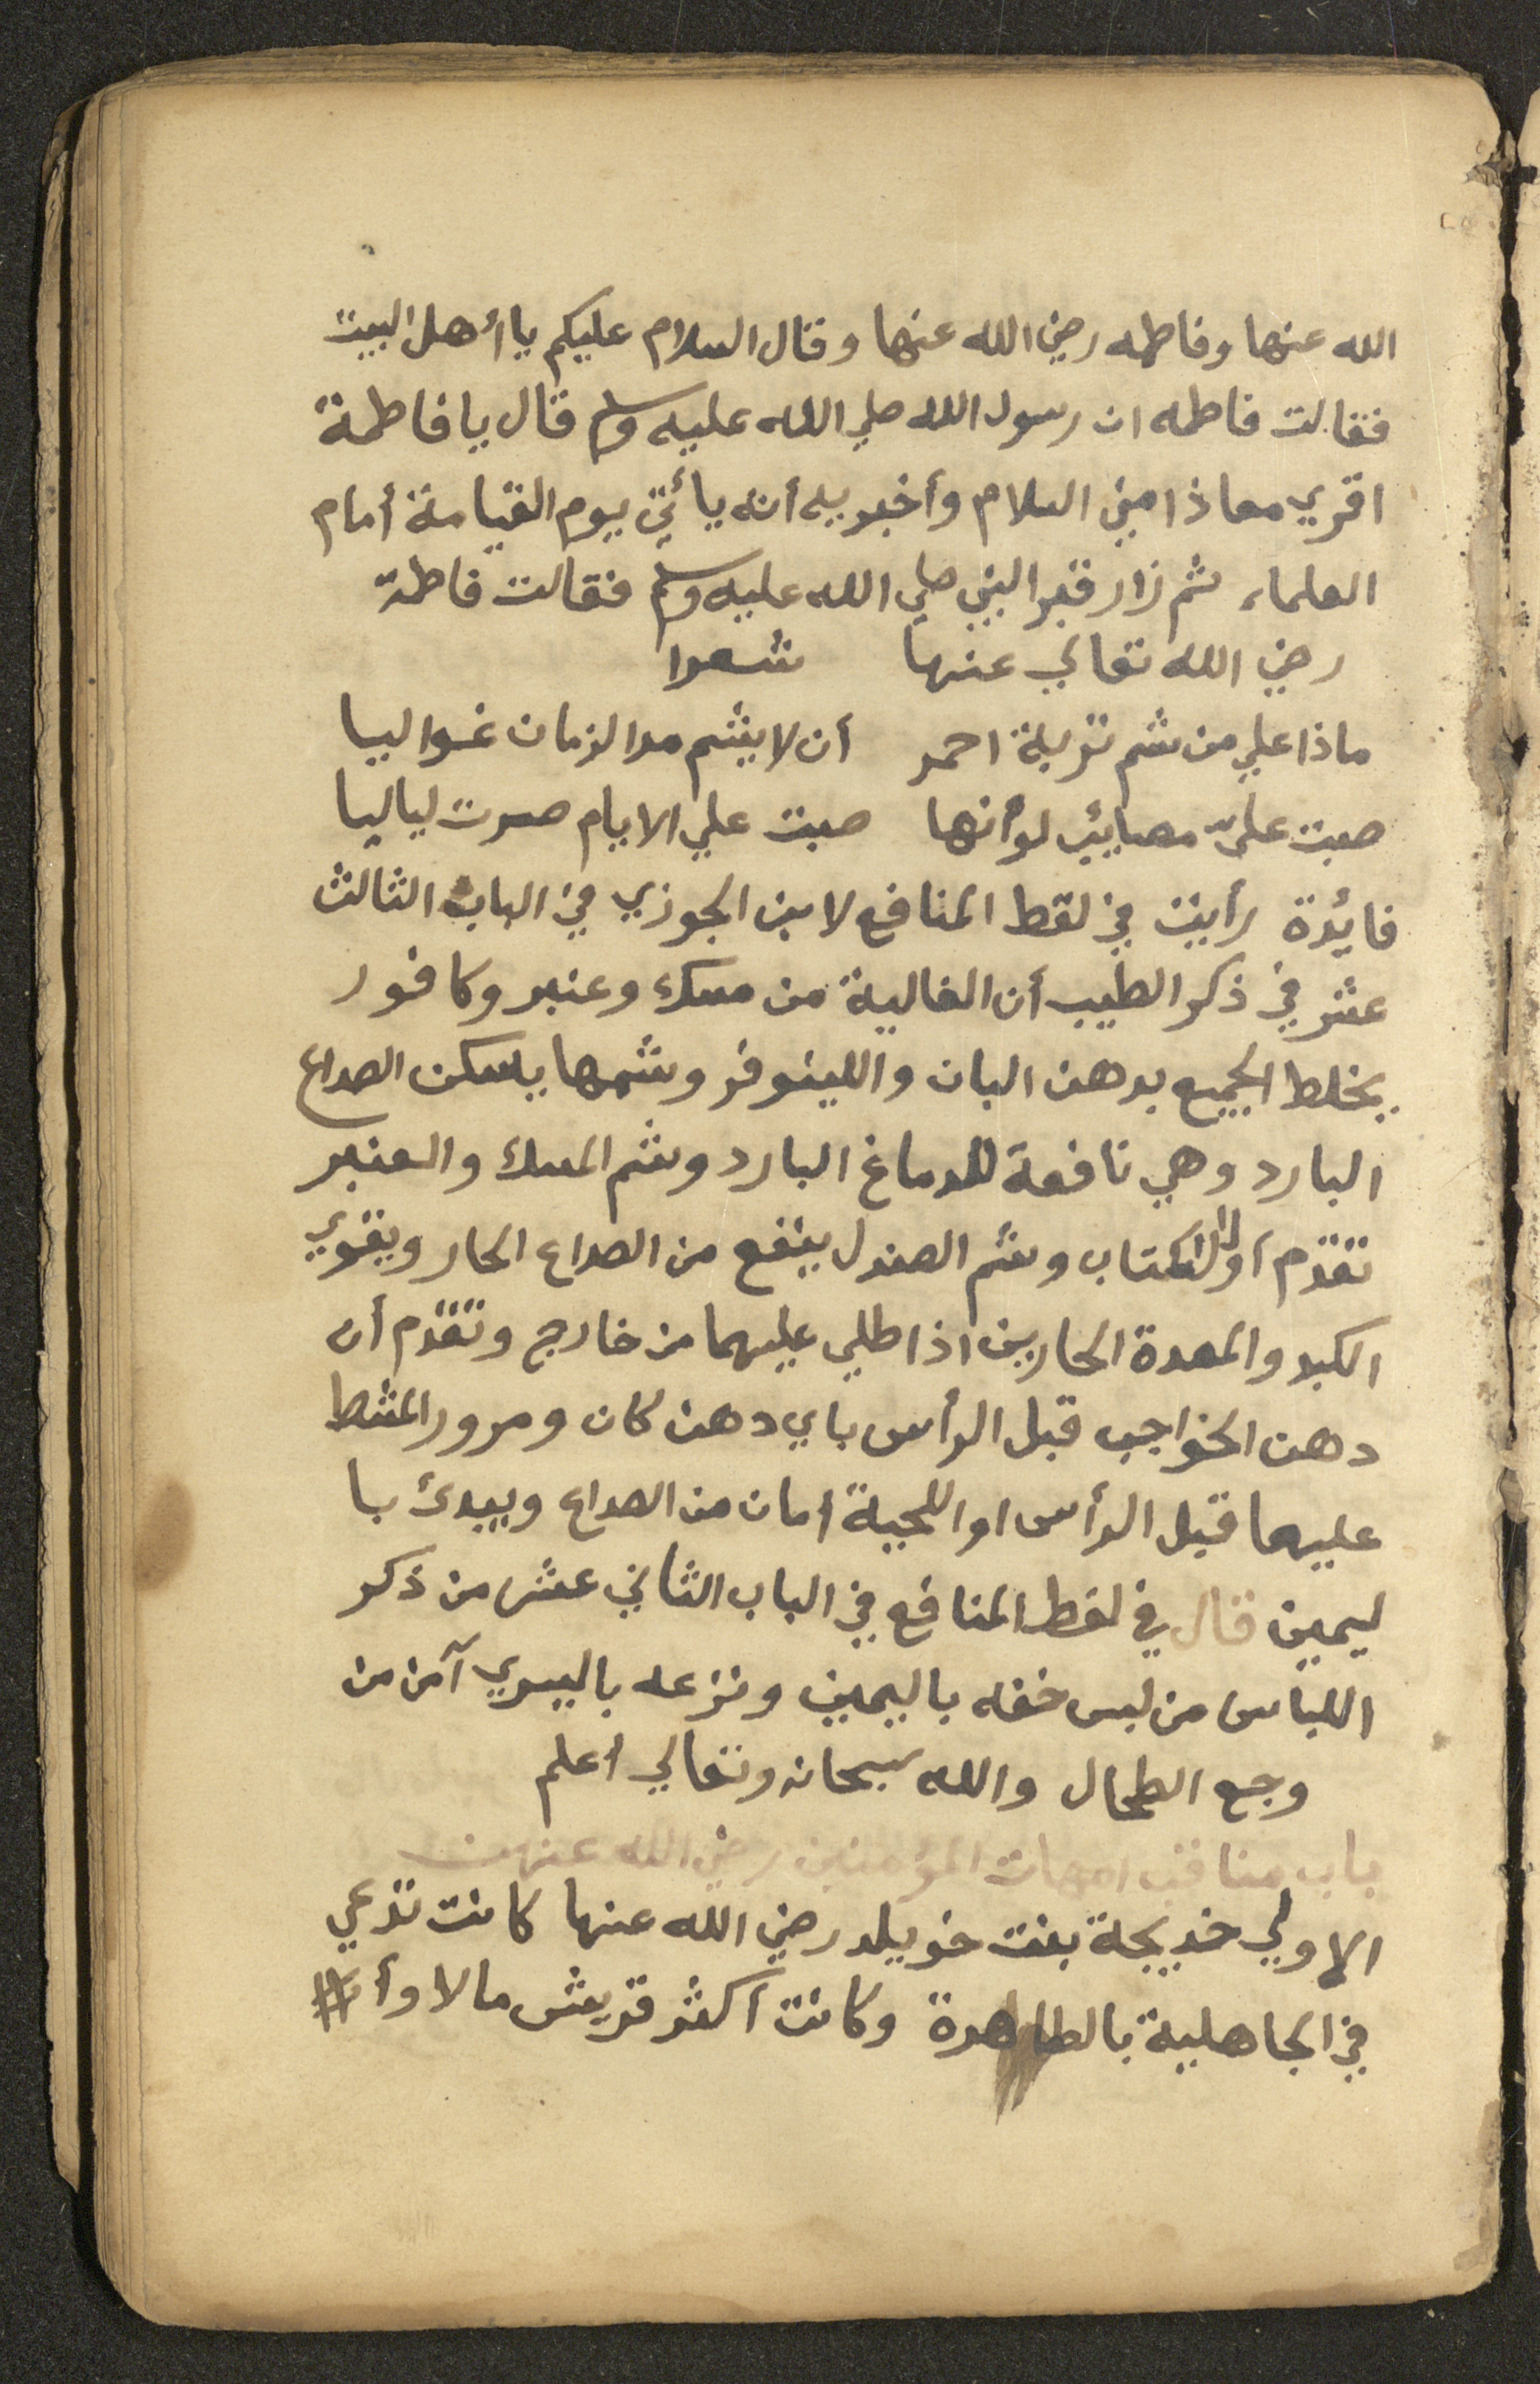 الله عنها وفاطمه رضي الله عنها وقال السلام عليكم يا أهل البيت
فقالت فاطمه ان رسول الله صلي الله عليه وسلم قال يا فاطمة
اقري معاذا مني السلام وأخبريه أنه يأتي يوم القيامة أمام
العلماء ثم زار قبر النبي صلي الله عليه وسلم فقالت فاطمة
رضي الله تعالي عنها شعرا
ماذا علي من شم تربة احمد أن لا يشم مدا الزمان غواليا
صبت علىّ مصايئب لوأنها صبت علي الايام صرت لياليا
فايئدة رأيت في لقط المنافع لابن الجوزي في الباب الثالث
عشر في ذكر الطيب أن الغالية من مسك وعنبر وكافور
يخلط الجميع بدهن البان واللينوفر وشمها يسكن الصداع
البارد وهي نافعة للدماغ البارد وشم المسك والعنبر
تقدّم أول الكتاب وشم الصندل ينفع من الصداع الحار ويقوي
الكبد والمعدة الحارين اذا طلي عليهما من خارج وتقدّم أن
دهن الخواجب قبل الرأس باي دهن كان ومرور المشط
عليهما قبل الرأس او اللحية امان من الصداع ويبدئ با
ليمين قال في لقط المنافع في الباب الثاني عشر من ذكر
اللباس من لبس خفه باليمين ونزعه باليسري آمن من
وجع الطحال والله سبحانه وتعالي أعلم
باب مناقب امهات المؤمنين رضي الله عنهن
الاولي خديجة بنت خويلد رضي الله عنها كانت تدعي
في الجاهلية بالطاهرة وكانت أكثر قريش مالا وأ